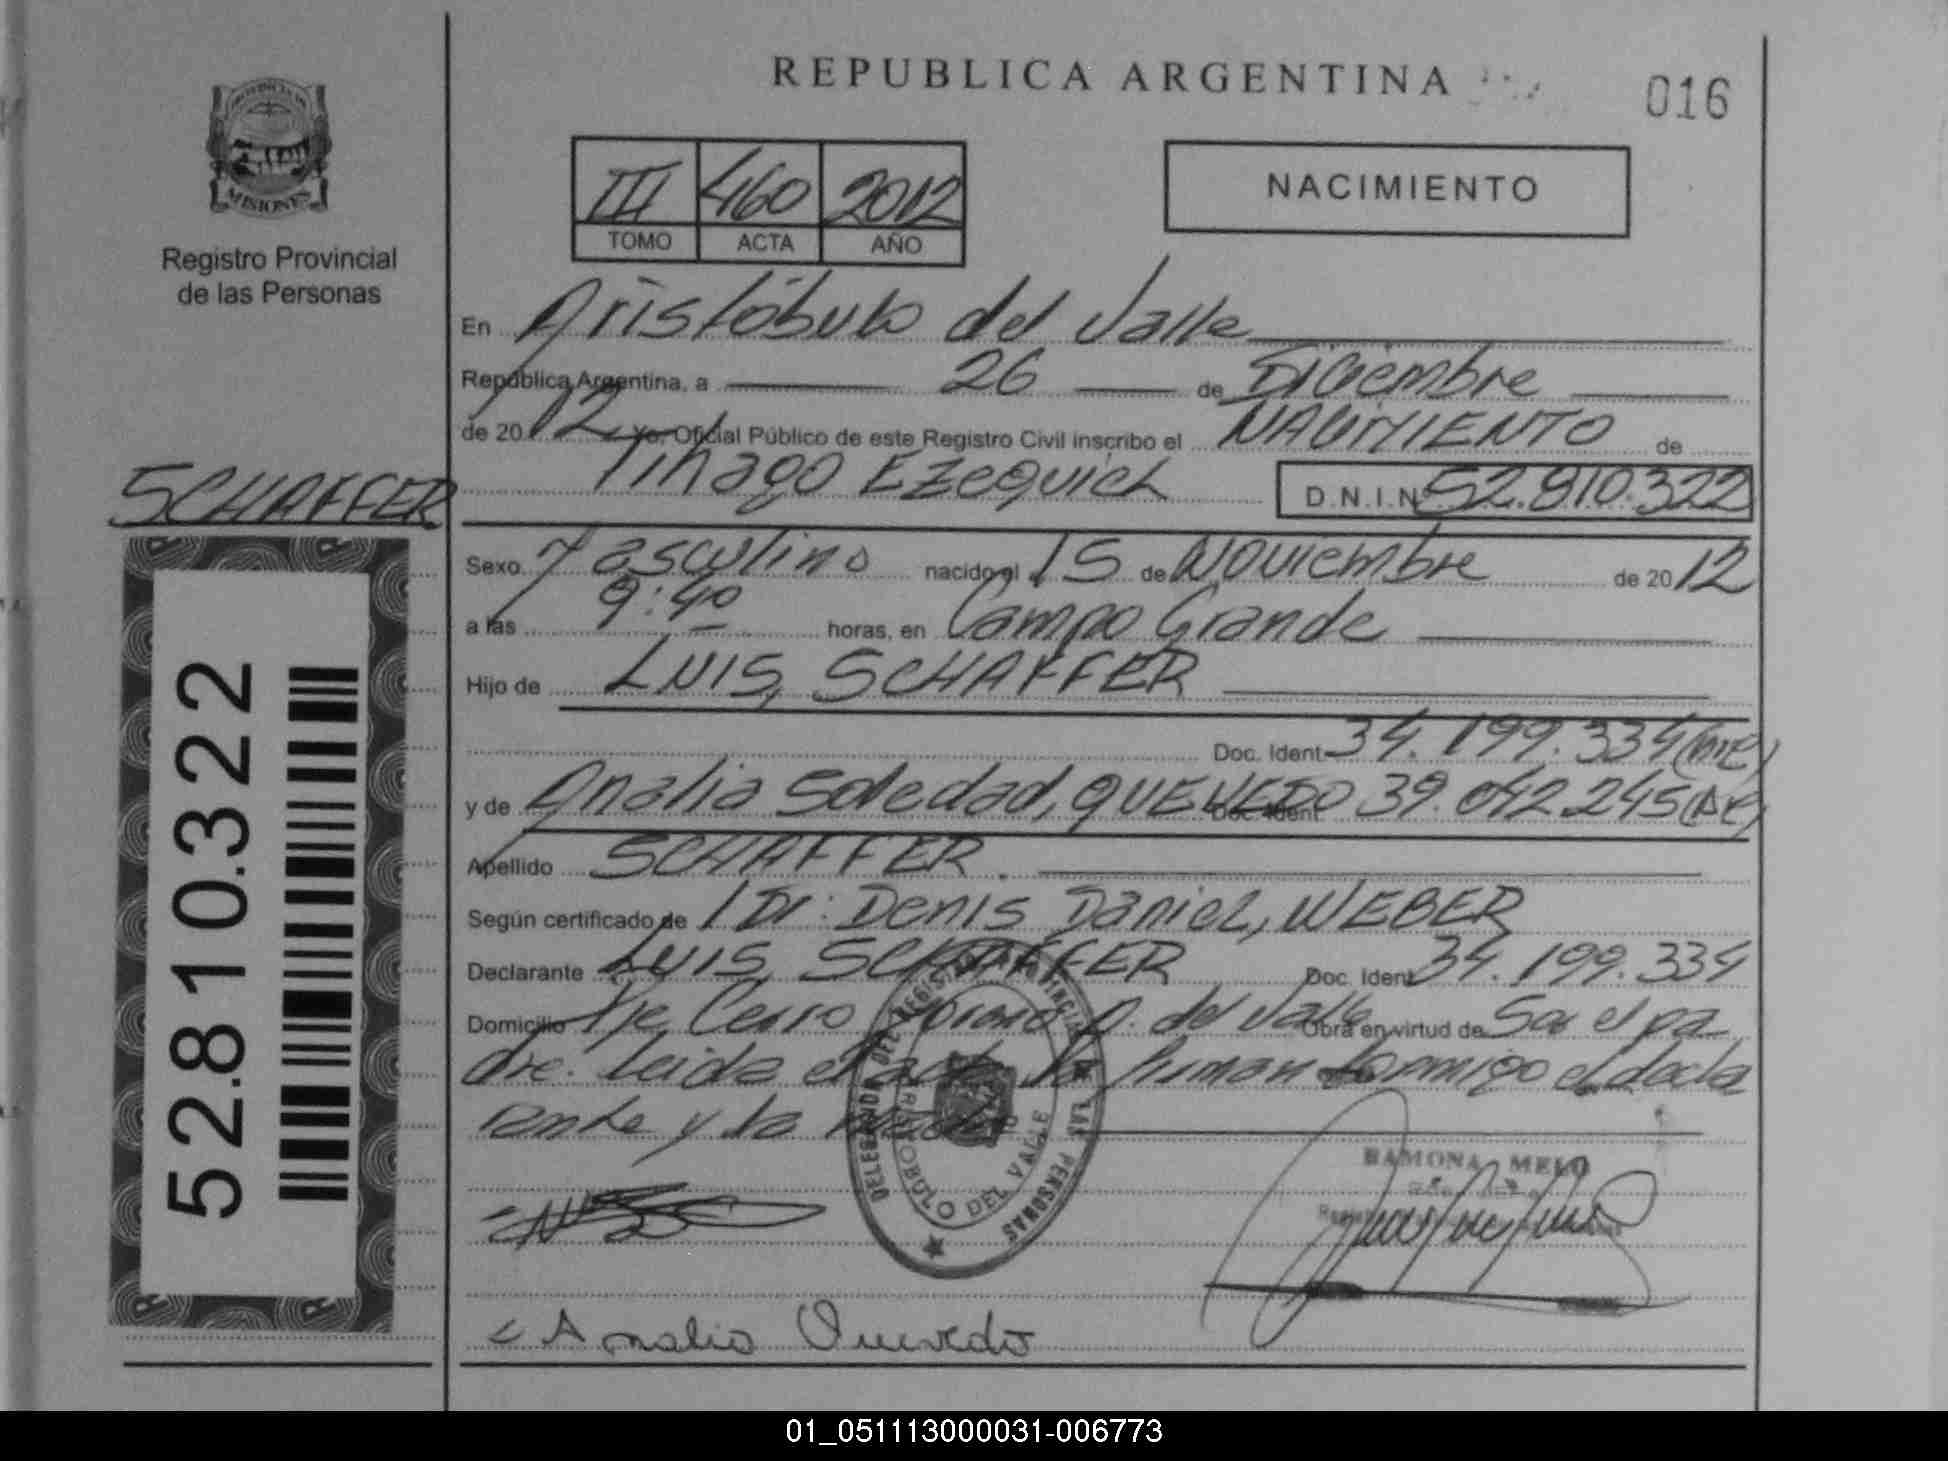 PROVINCIA DE
MISIONES
Registro Provincial
de las Personas
SCHAFFER
52.810.322
REPUBLICA ARGENTINA
016
III 460 2012
TOMO ACTA AÑO
NACIMIENTO
En Aristóbulo del Valle
República Argentina, a 26 de Diciembre
de 2012 Yo, Oficial Público de este Registro Civil inscribo el NACIMIENTO de
Tihago Ezequiel D.N.I.N 52.810.322
Sexo Masculino nacido el 15 de Noviembre de 2012
a las 9:40 horas, en Campo Grande
Hijo de Luis, SCHAFFER
Doc. Ident 34.199.334
y de Analia Soledad, QUEVEDO Doc. Ident 39.042.245
Apellido SCHAFFER.
Según certificado de Dr: Denis Daniel, WEBER
Declarante Luis, SCHAFFER Doc. Ident 34.199.334
Domicilio Pje. Cerro Moreno A. del Valle Obra en virtud de Ser el pa-
dre. Leida el acta la firman conmigo el decla
rante y la madre
DELEGACION DEL REGISTRO PROVINCIAL DE LAS PERSONAS
ARISTOBULO DEL VALLE
RAMONA MELO
Analia Quevedo
01_051113000031-006773